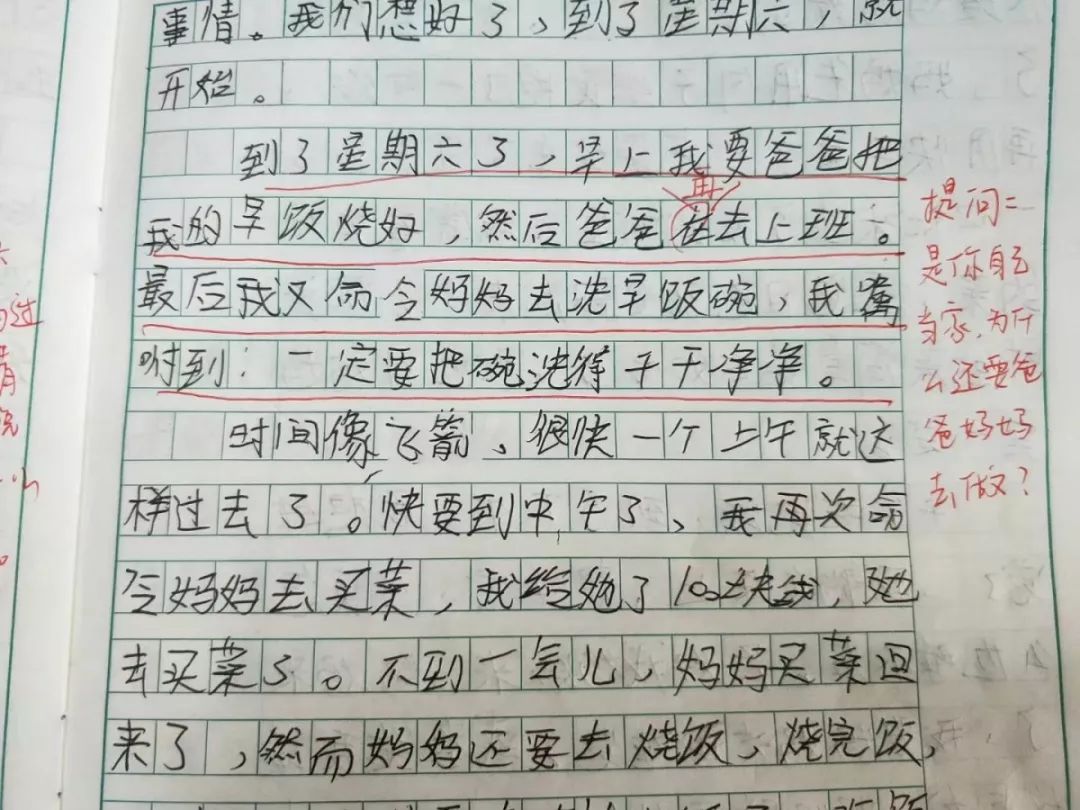 事情。我们想好了,到了星期六,就
开始。
到了星期六了,早上我要爸爸把
我的早饭烧好,然后爸爸在去上班。
再
最后我又命令妈妈去洗早饭碗,我嘱
咐到:一定要把碗洗得干干净净。
时间像飞箭、很快一个上午就这
样过去了。快要到中午了、我再次命
令妈妈去买菜,我给她了100块钱,她
去买菜了。不到一会儿,妈妈买菜回
来了,然而妈妈还要去烧饭、烧完饭,
提问:
是你自己
当家,为什
么还要爸
爸妈妈
去做?